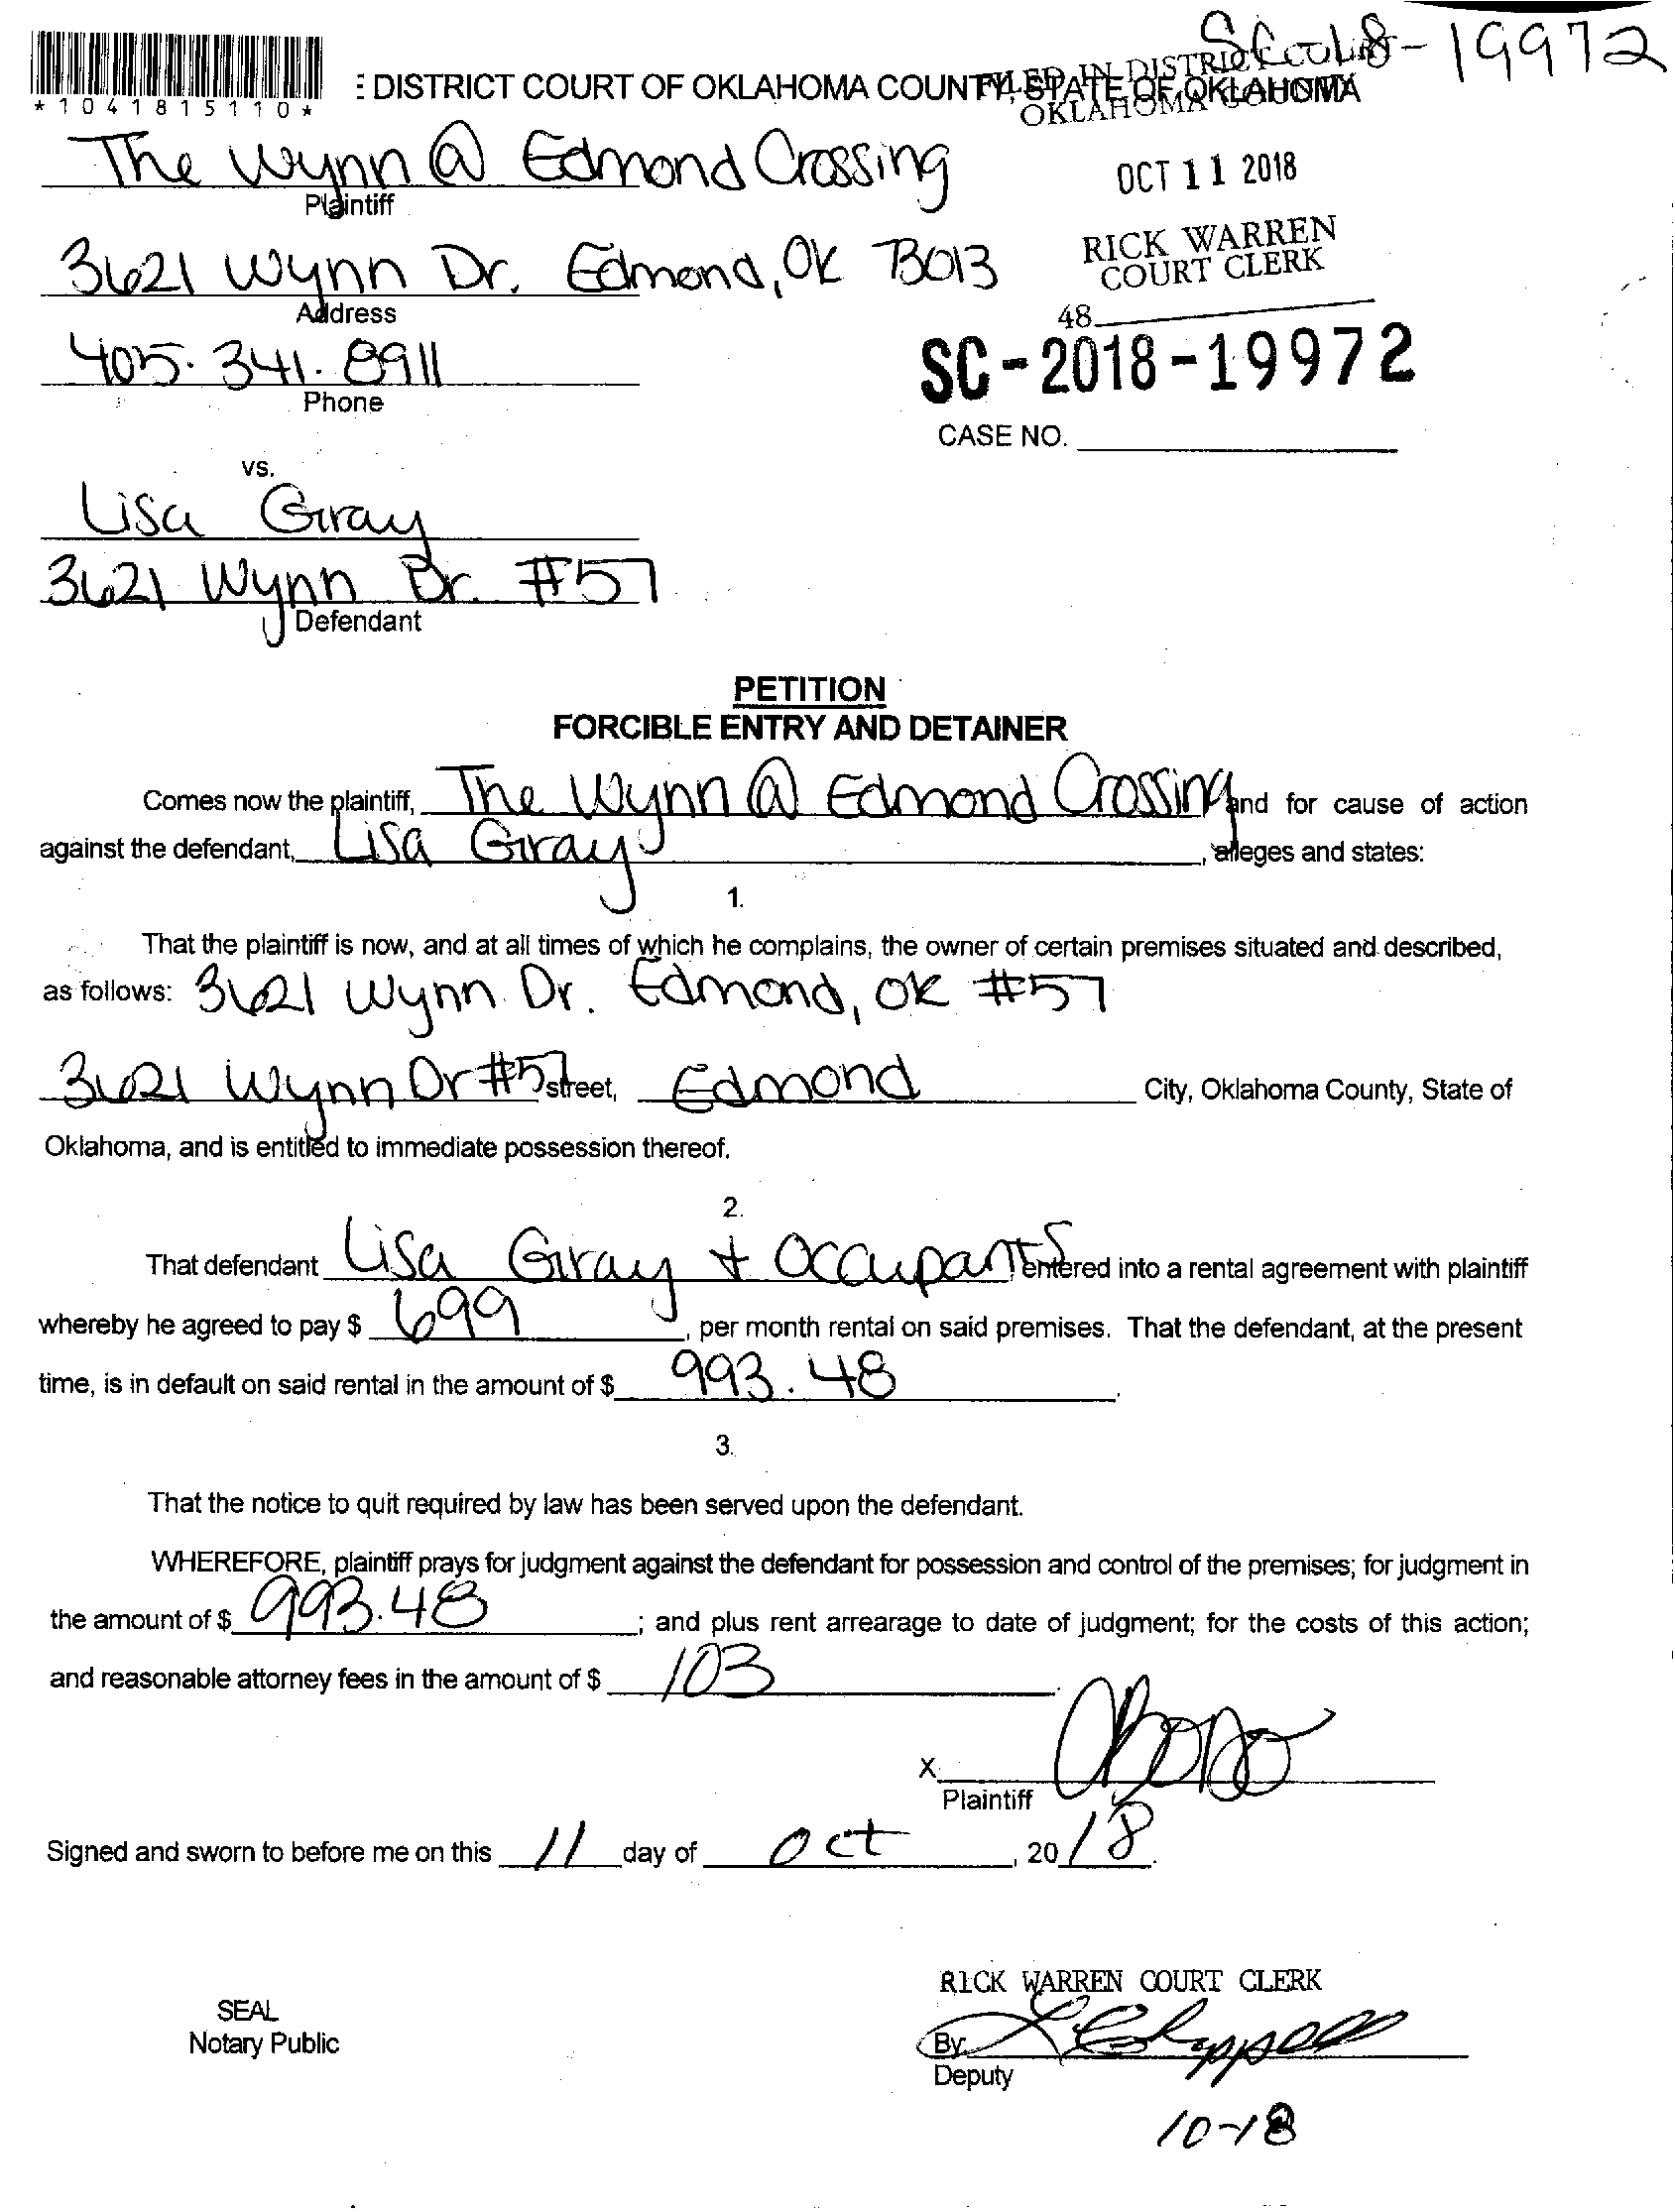 SC-18-19972
*1041815110*
E DISTRICT COURT OF OKLAHOMA COUNTY, STATE OF OKLAHOMA
FILED IN DISTRICT COURT
OKLAHOMA COUNTY
The Wynn @ Edmond Crossing
Plaintiff
OCT 11 2018
3621 Wynn Dr. Edmond, OK 73013
Address
RICK WARREN
COURT CLERK
48
405. 341. 8911
Phone
SC-2018-19972
CASE NO.
vs.
Lisa Gray
3621 Wynn Dr. #57
Defendant
PETITION
FORCIBLE ENTRY AND DETAINER
Comes now the plaintiff, The Wynn @ Edmond Crossing and for cause of action
against the defendant, Lisa Gray, alleges and states:
1.
That the plaintiff is now, and at all times of which he complains, the owner of certain premises situated and described,
as follows: 3621 Wynn Dr. Edmond, OK #57
3621 Wynn Dr #57 street, Edmond City, Oklahoma County, State of
Oklahoma, and is entitled to immediate possession thereof.
2.
That defendant Lisa Gray + Occupants, entered into a rental agreement with plaintiff
whereby he agreed to pay $ 699, per month rental on said premises. That the defendant, at the present
time, is in default on said rental in the amount of $ 993.48.
3.
That the notice to quit required by law has been served upon the defendant.
WHEREFORE, plaintiff prays for judgment against the defendant for possession and control of the premises; for judgment in
the amount of $ 993.48; and plus rent arrearage to date of judgment; for the costs of this action;
and reasonable attorney fees in the amount of $ 103.
X
Plaintiff
Signed and sworn to before me on this 11 day of Oct, 2018.
RICK WARREN COURT CLERK
SEAL
Notary Public
By
Deputy
10-18